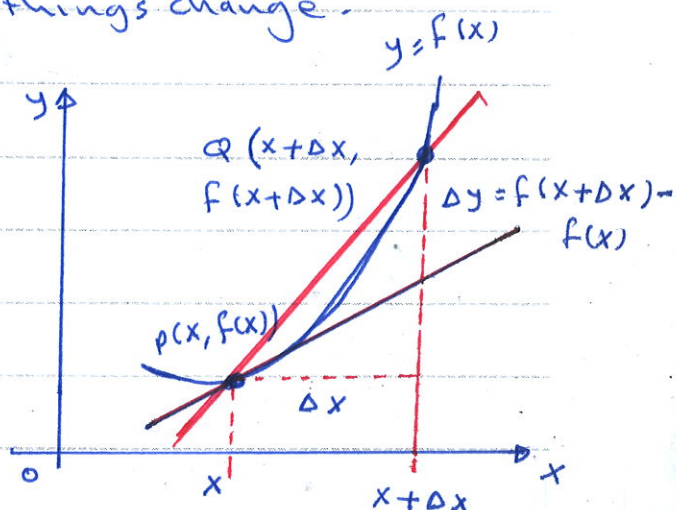 things change.
y = f(x)
y
Q (x+Δx,
f(x+Δx))
Δy = f(x+Δx)-
f(x)
P(x, f(x))
Δx
0
x
x+Δx
x